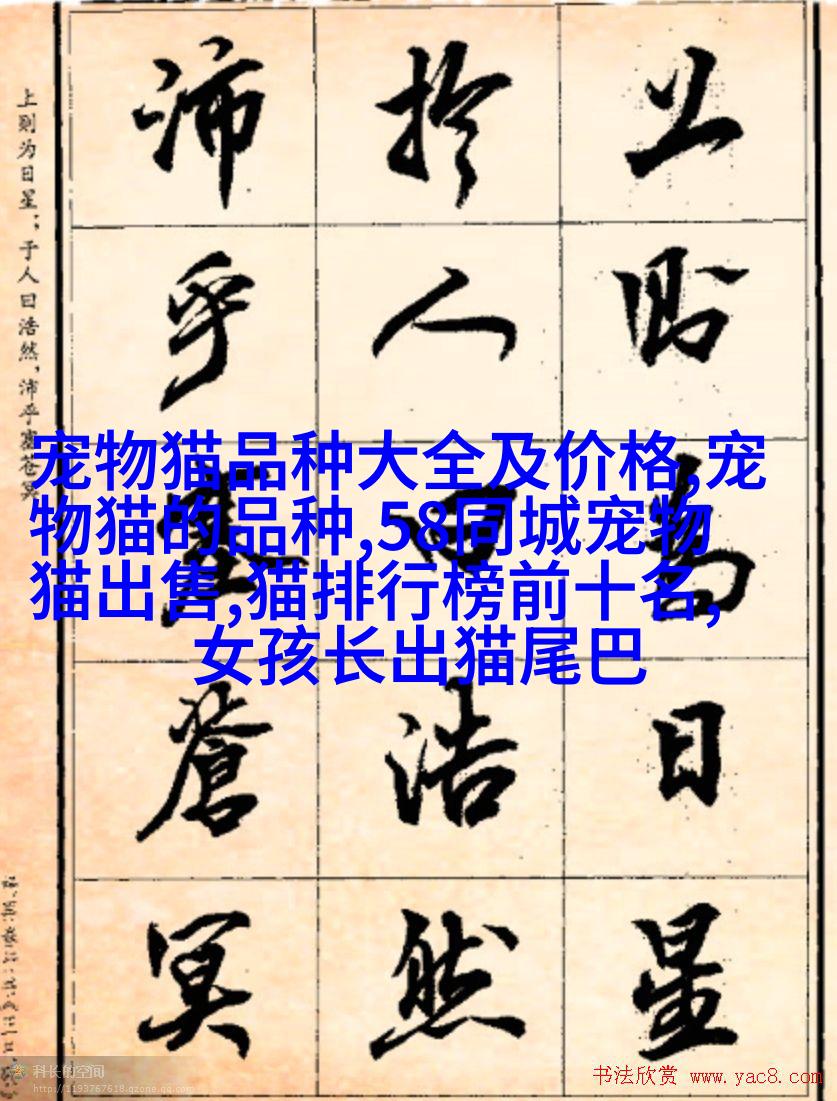 上則為日星
扵人曰浩然
沛乎塞蒼冥
上则为日星；于人曰浩然，沛乎塞苍冥
宠物猫品种大全及价格,宠
物猫的品种,58同城宠物
猫出售,猫排行榜前十名,
女孩长出猫尾巴
科长的空间
http://1193767618.qzone.qq.com
书法欣赏 www.yac8.com